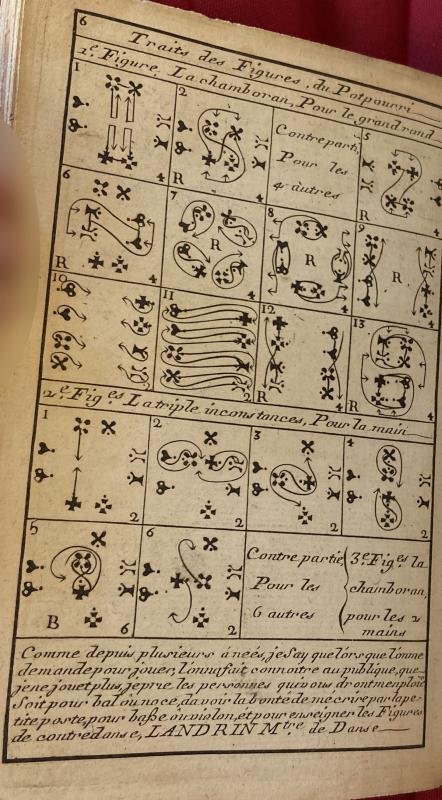 6
Traits des Figures, du Potpourri
1.e Figure, La chamboran, Pour le grand rond
1
2
R
4
4
Contre parti,
Pour les
4 autres
5
R
4
6
R
4
7
R
4
8
R
4
9
R
4
10
4
11
2
12
R
4
13
R
4
2.e Fig.es La triple inconstances, Pour la main
1
2
2
2
3
2
4
2
5
B
6
6
2
Contre partie,
Pour les
6 autres
3.e Fig.es la
chamboran,
pour les 2
mains
Comme depuis plusieurs áneés, je Say que lors que l'on me
demande pour jouer, l'on na fait connoitre au publique, que
je ne jouet plus, je prie les personnes qui vous, dront men ploïé
Soit pour bal ou nocé, da voir la bonté de me crire par la pe-
tite poste, pour basse ou violon, et pour enseigner les Figures
de contredanse, LANDRIN M.tre de Danse